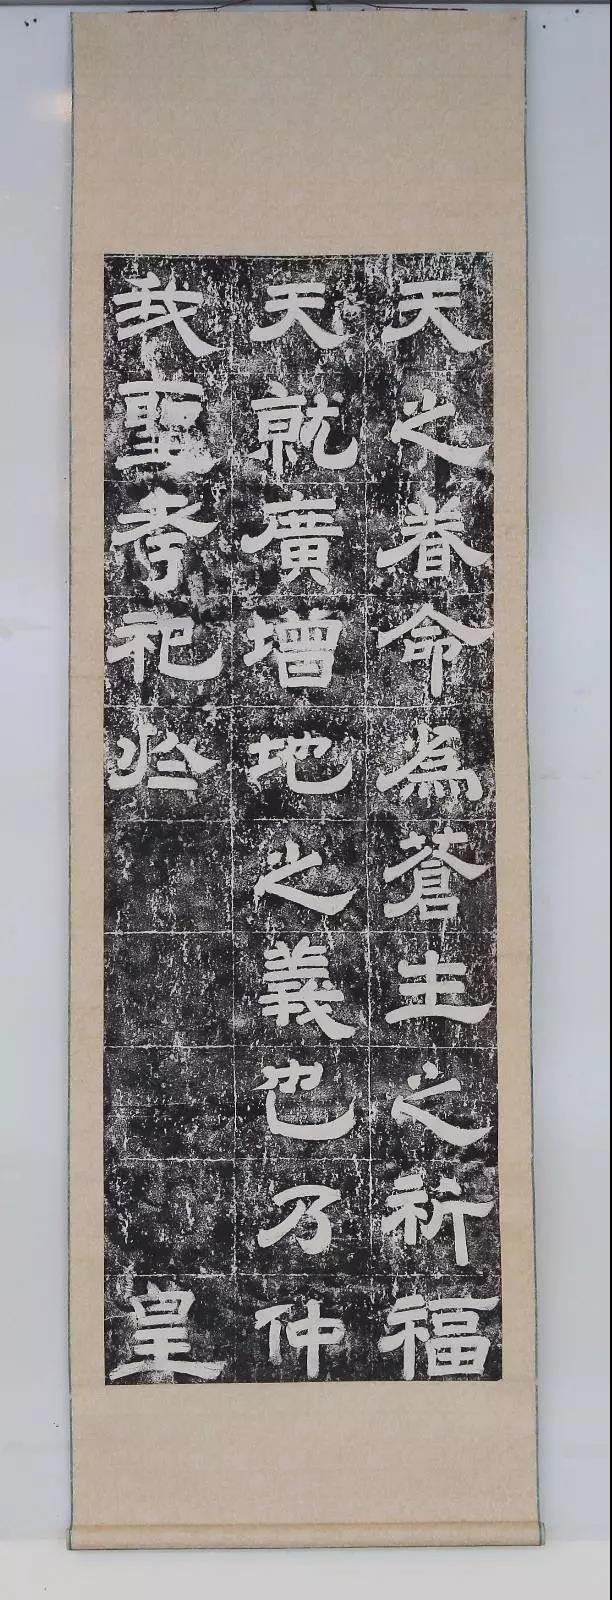 天之眷命為蒼生之祈福
天就廣增地之義也乃仲
我聖孝祀於皇